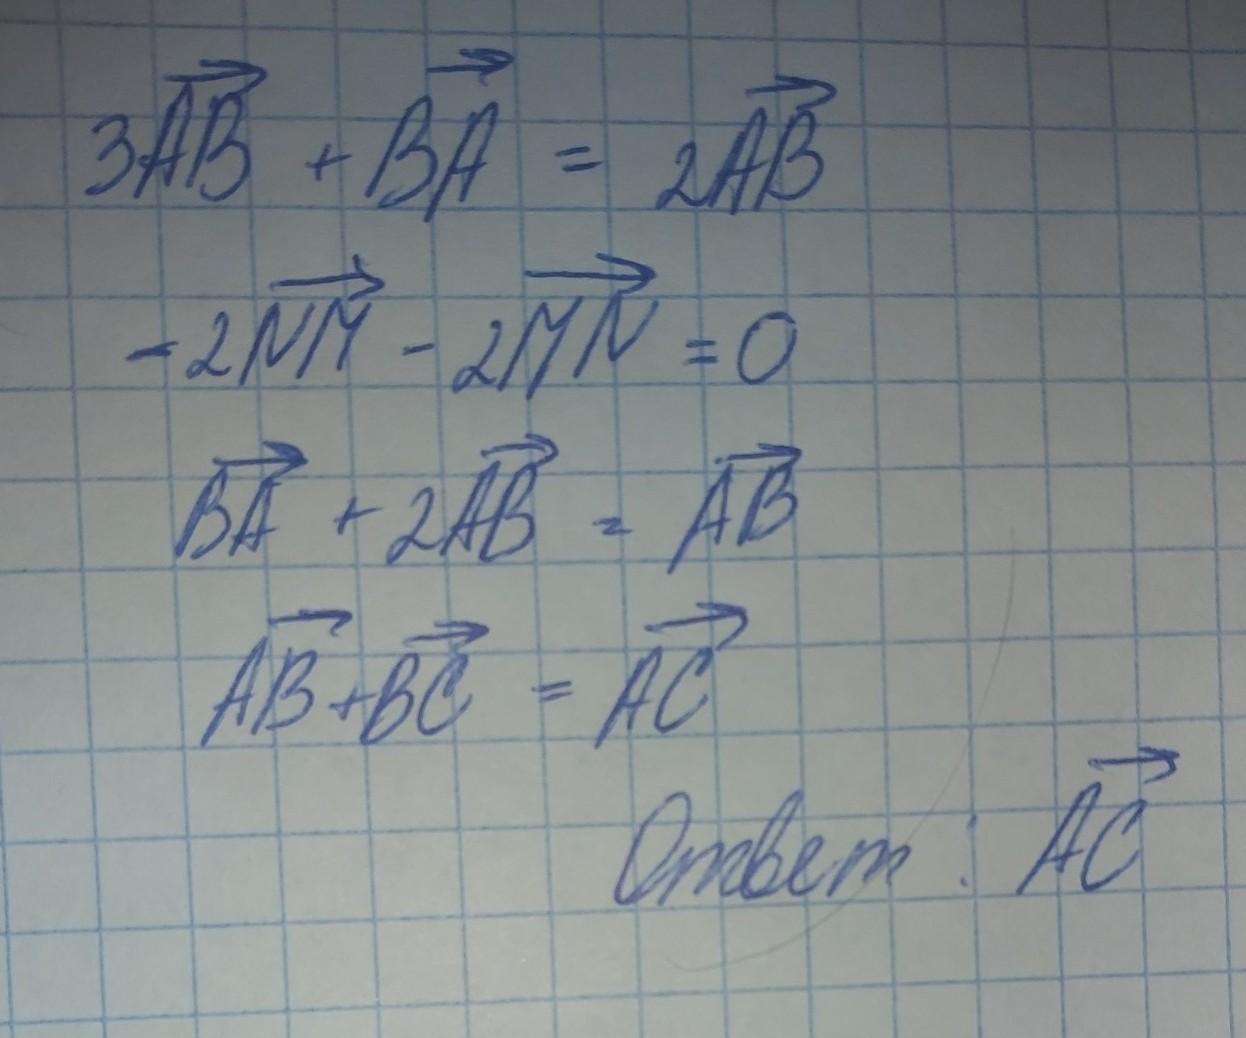 3AB + BA = 2AB
-2NM - 2MN = 0
BA + 2AB = AB
AB + BC = AC
Ответ: AC